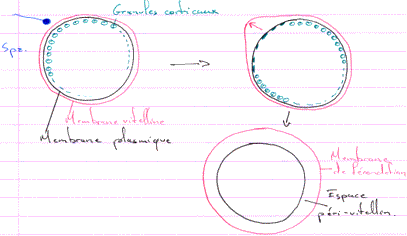 Granules corticaux
Spz.
Membrane vitelline
Membrane plasmique
Membrane
de fécondation
Espace
péri-vitellin.